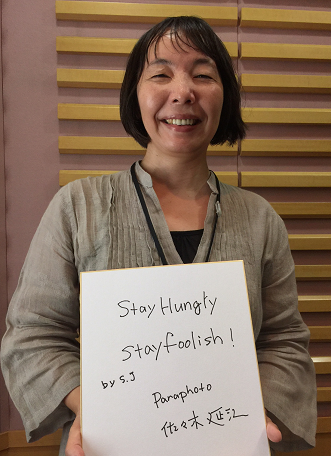 Stay Hungry
Stay foolish!
by S.J
Panaphoto
佐々木 延江